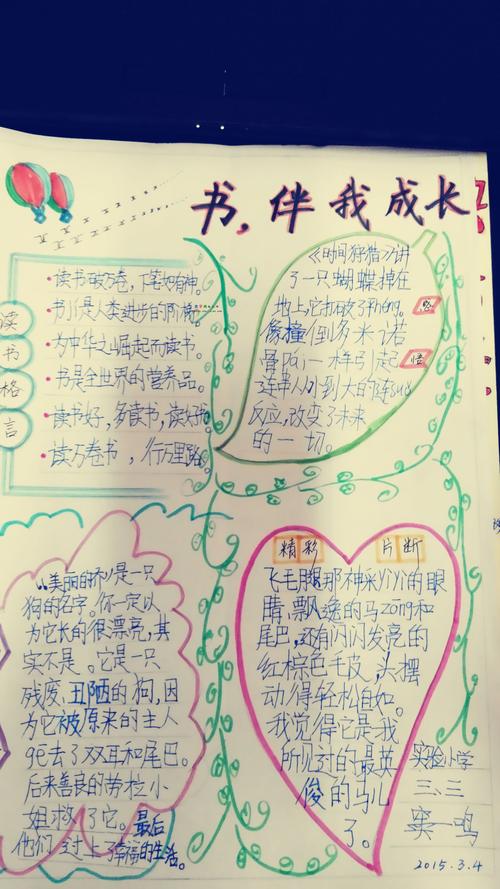 书,伴我成长
读书格言
读书破万卷,下笔如有神。
书儿是人类进步的阶梯。
为中华之崛起而读书。
书是全世界的营养品。
读书好,多读书,读好书
读万卷书,行万里路
《时间狩猎》讲
了一只蝴蝶掉在
地上,它打破了平héng。
像撞倒多米诺
骨响一样引起
连串从小到大的连suo
反应,改变了未来
的一切。
悟
美丽的 是一只
狗的名字。你一定以
为它长的很漂亮,其
实不是。它是一只
残废、丑陋的狗,因
为它被原来的主人
ge去了双耳和尾巴。
后来善良的劳拉小
姐救了它。最后
他们过上了幸福的生活。
精彩 片断
飞毛腿那神采yìyì的眼
睛,飘逸的马zōng和
尾巴,还有闪闪发亮的
红棕色毛皮,头摆
动得轻松自如。
我觉得它是我
所见过的最英
俊的马儿
了。
实验小学
三、三
窦一鸣
2015.3.4